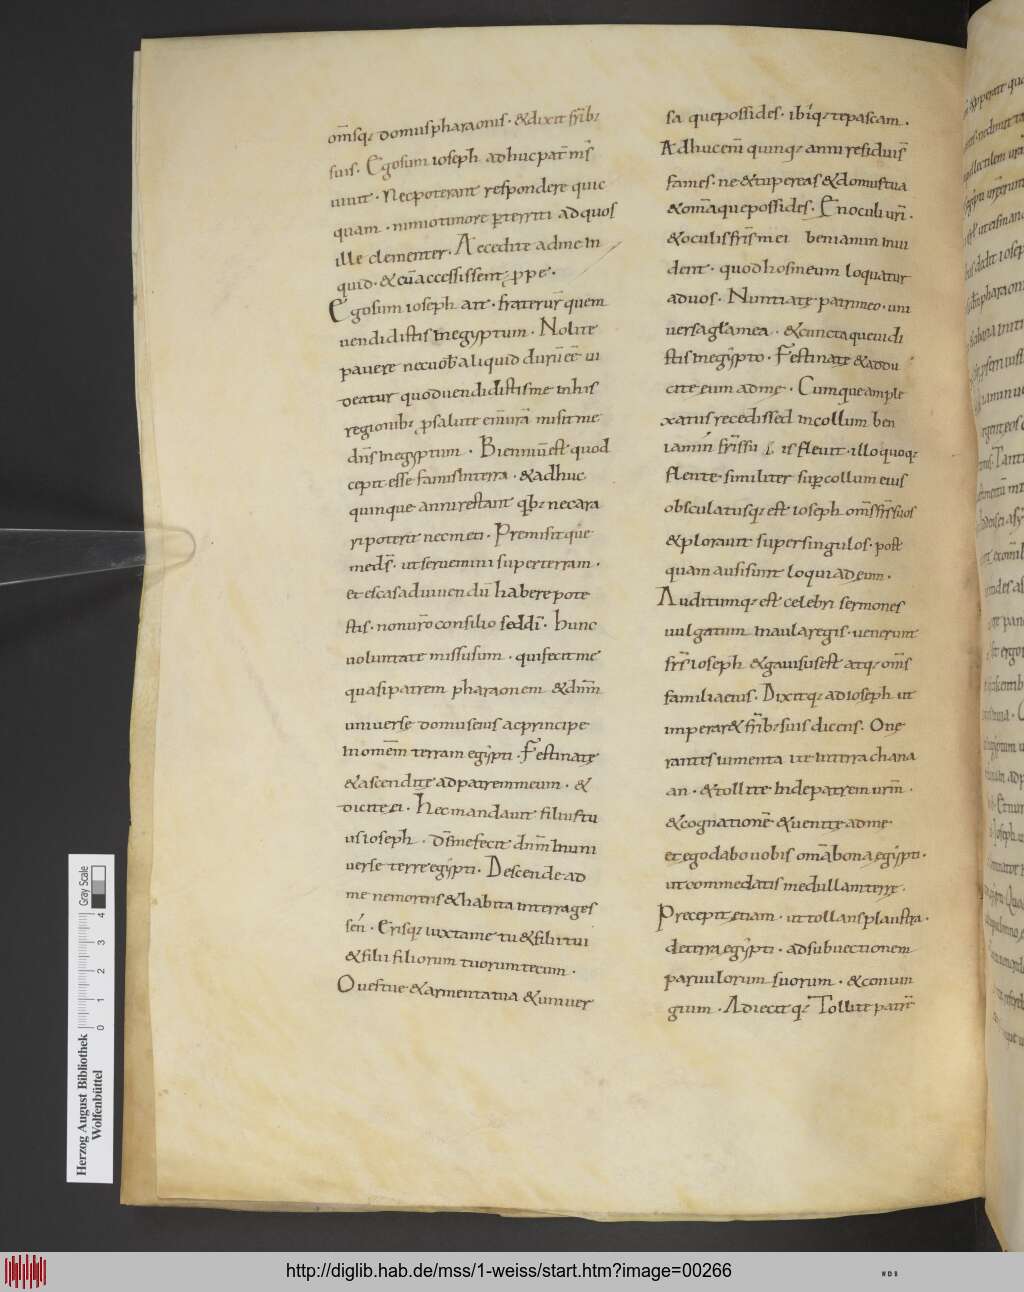 om̅sq; domuspharaonis · &dixit fr̅ib;
suis · Egosum ioseph adhucpat̅ m̅s
uiuit · Necpoterant respondere quic
quam · nimiotimore p̱territi adquos
ille clementer · Accedite adme in
quid · &cu̅accessissent; ꝓpe ·
Egosum ioseph ait · fraterur̅ quem
uendidistis inegyptum · Nolite
pauere necuob̅aliquid duru̅ee̅ ui
deatur quoduendidistisme inhis
regionib; ꝓsalute em̅ura̅ misitme
dn̅s inegyptum · Bienniu̅est quod
cepit esse famisinterra · &adhuc
quinque annirestant qb; necara
ripoterit necmeti · Premisitque
med̅s · utseruemini superterram ·
etescasaduiuendu̅ haberepote
stis · nonur̅o consilio seddi̅ · hunc
uoluntate missusum · quifecitme
quasipatrem pharaonem &dn̅m
uniuerse domuseius acprincipe
inome̅m terram egypti · Festinatę
&ascendite adpatremmeum · &
diciteei · Hecmandauit filiustu
usioseph · ds̅mefecit dn̅m inuni
uerse terreegypti · Descende ad
me nemoreris &habita interrages
sen̅ · Erisq; iuxtame tu &filiitui
&filii filiorum tuorumtecum ·
Ouestue &armentatua &uniuer
sa quepossides · ibiq; tepascam ·
Adhucem̅ quinq; anni residuis̅
fames · ne &tupereas &domustua
&om̅aquepossides · En oculi uri̅ ·
&oculisfr̅is mei beniamin inui
dent · quodhosmeum loquatur
aduos · Nuntiatę patrimeo · uni
uersagl̅amea · &cunctaqueuidi
stis inegypto · Festinatę &addu
cite eum admę · Cumqueample
xatusrecedissed incollum ben
iamin̅ fr̅issui is fleuit · illoquoq;
flente · similiter sup̱collum eius
obsculatusq; est ioseph om̅sfr̅s suos
&plorauit supersingulos · post
quam ausisunt loqui adeum ·
Auditumq; est celebri sermones
uulgatum inaularegis · uenerunt
fr̅s ioseph &gauisusest atq; om̅s
familiaeius · Dixitq; adioseph ut
imperar& fr̅ib; suis dicens · One
rantes iumenta ite interra chana
an · &tollite indepatrem urm̅ ·
&cognatione̅ &uenite adme
etegodabouobis om̅abona egypti ·
utcommedatis medullamterrę ·
Precepit etiam · uttollansplaustra ·
deterra egypti · adsubuectionem
paruulorum suorum · &coniu
gium · Adiecitq; Tollite patre̅
http://diglib.hab.de/mss/1-weiss/start.htm?image=00266
Herzog August Bibliothek
Wolfenbüttel
0 1 2 3 4
Gray Scale